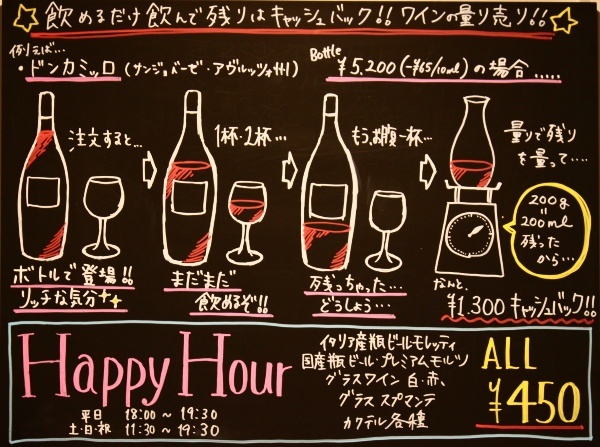 飲めるだけ飲んで残りはキャッシュバック!! ワインの量り売り!!
例えば…
・ドンカミッロ(サンジョベーゼ・アヴルッツォ州)
Bottle
¥5,200(-¥65/10ml)の場合.....
注文すると…
1杯・2杯…
もうお腹一杯…
量りで残り
を量って….
200g
=
200ml
残った
から…
ボトルで登場!!
リッチな気分
まだまだ
飲めるぞ!!
残っちゃった…
どうしよう…
なんと、
¥1,300キャッシュバック!!
Happy Hour
平日 18:00~19:30
土・日・祝 11:30~19:30
イタリア産瓶ビールモレッティ
国産瓶ビール・プレミアムモルツ
グラスワイン 白・赤、
グラス スプマンテ
カクテル各種
ALL
¥450